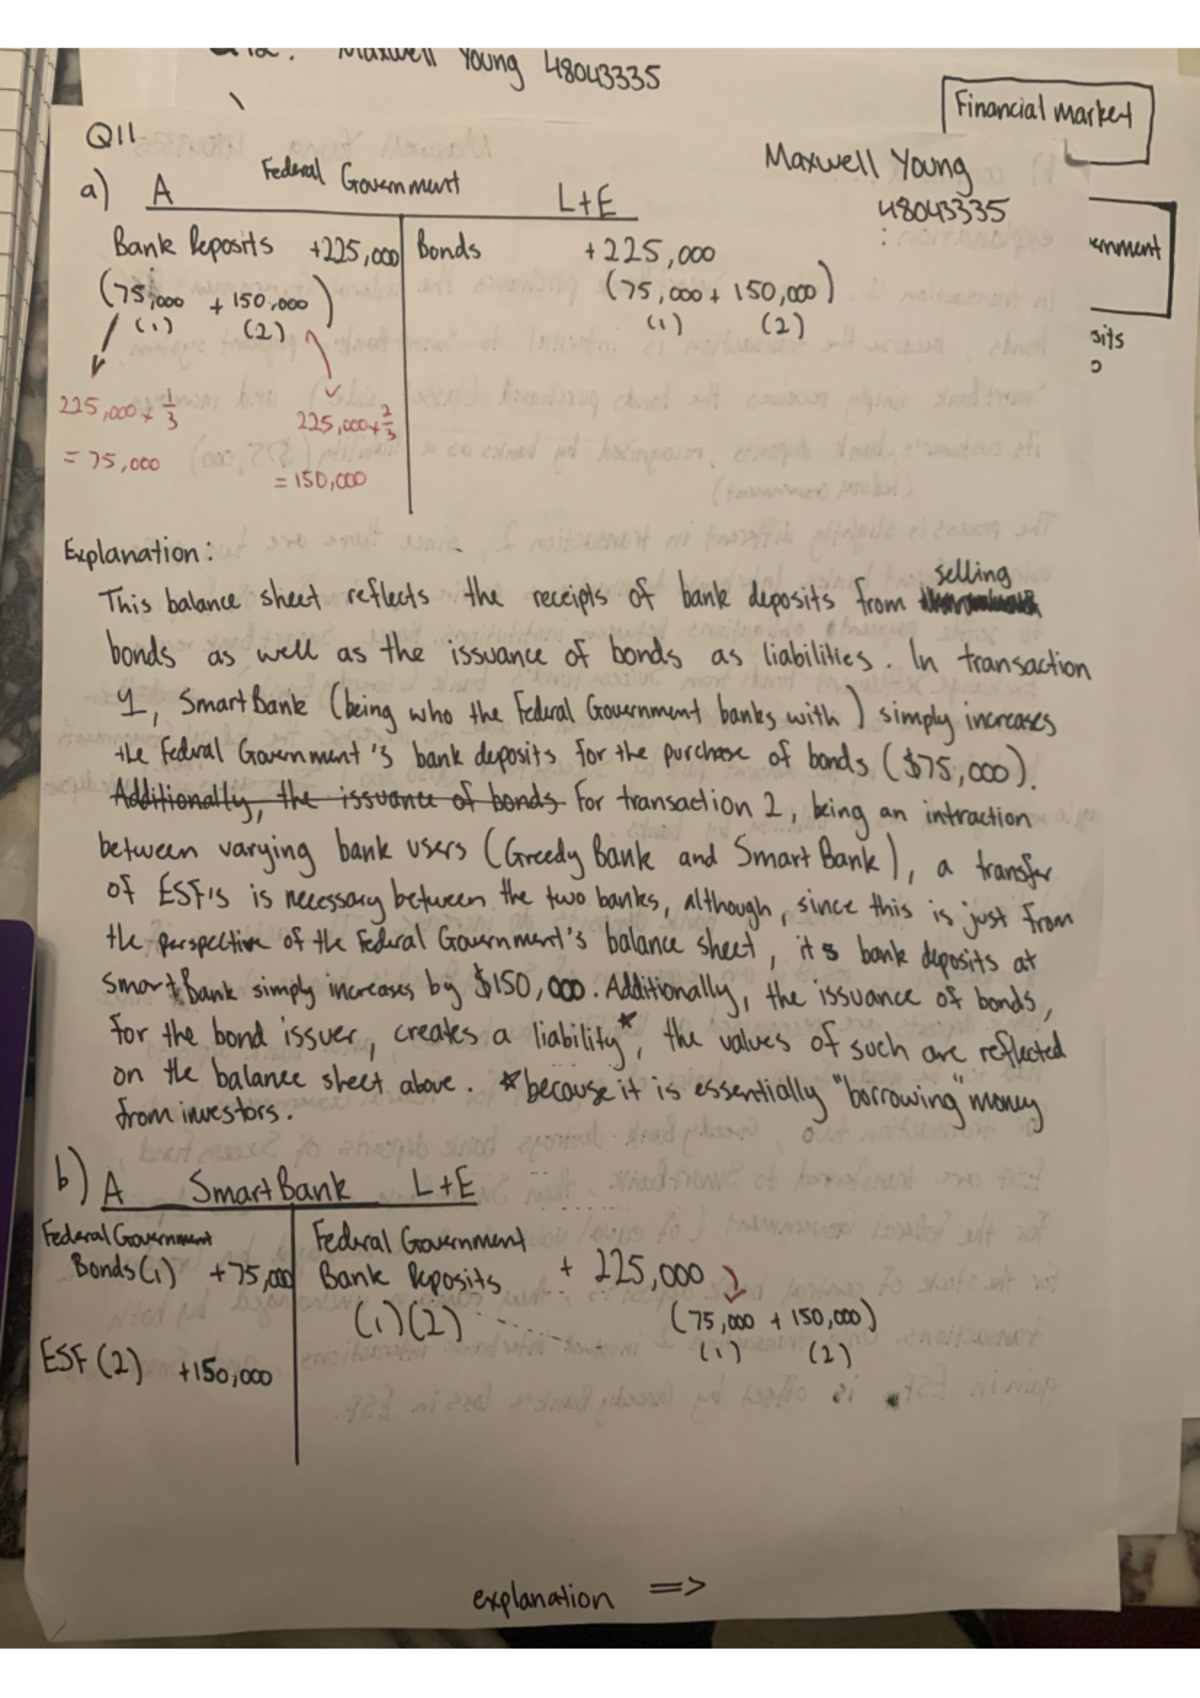 Q12. Maxwell Young 48043335
Financial Market
Q11
Maxwell Young
48043335
a) A Federal Government L+E
Bank Deposits +225,000 Bonds +225,000
(75,000 + 150,000) (75,000 + 150,000)
(1) (2) (1) (2)
225,000 x 1/3 225,000 x 2/3
= 75,000 = 150,000
ernment
sits
Explanation:
This balance sheet reflects the receipts of bank deposits from selling
bonds as well as the issuance of bonds as liabilities. In transaction
1, SmartBank (being who the Federal Government banks with) simply increases
the Federal Government's bank deposits for the purchase of bonds ($75,000).
Additionally, the issuance of bonds For transaction 2, being an intraction
between varying bank users (Greedy Bank and Smart Bank), a transfer
of ESF's is necessary between the two banks, although, since this is just from
the perspective of the Federal Government's balance sheet, its bank deposits at
Smart Bank simply increases by $150,000. Additionally, the issuance of bonds,
for the bond issuer, creates a liability*, the values of such are reflected
on the balance sheet above. *because it is essentially "borrowing" money
from investors.
b) A SmartBank L+E
Federal Government Federal Government
Bonds (1) +75,000 Bank Deposits + 225,000
(1)(2) (75,000 + 150,000)
(1) (2)
ESF (2) +150,000
explanation =>